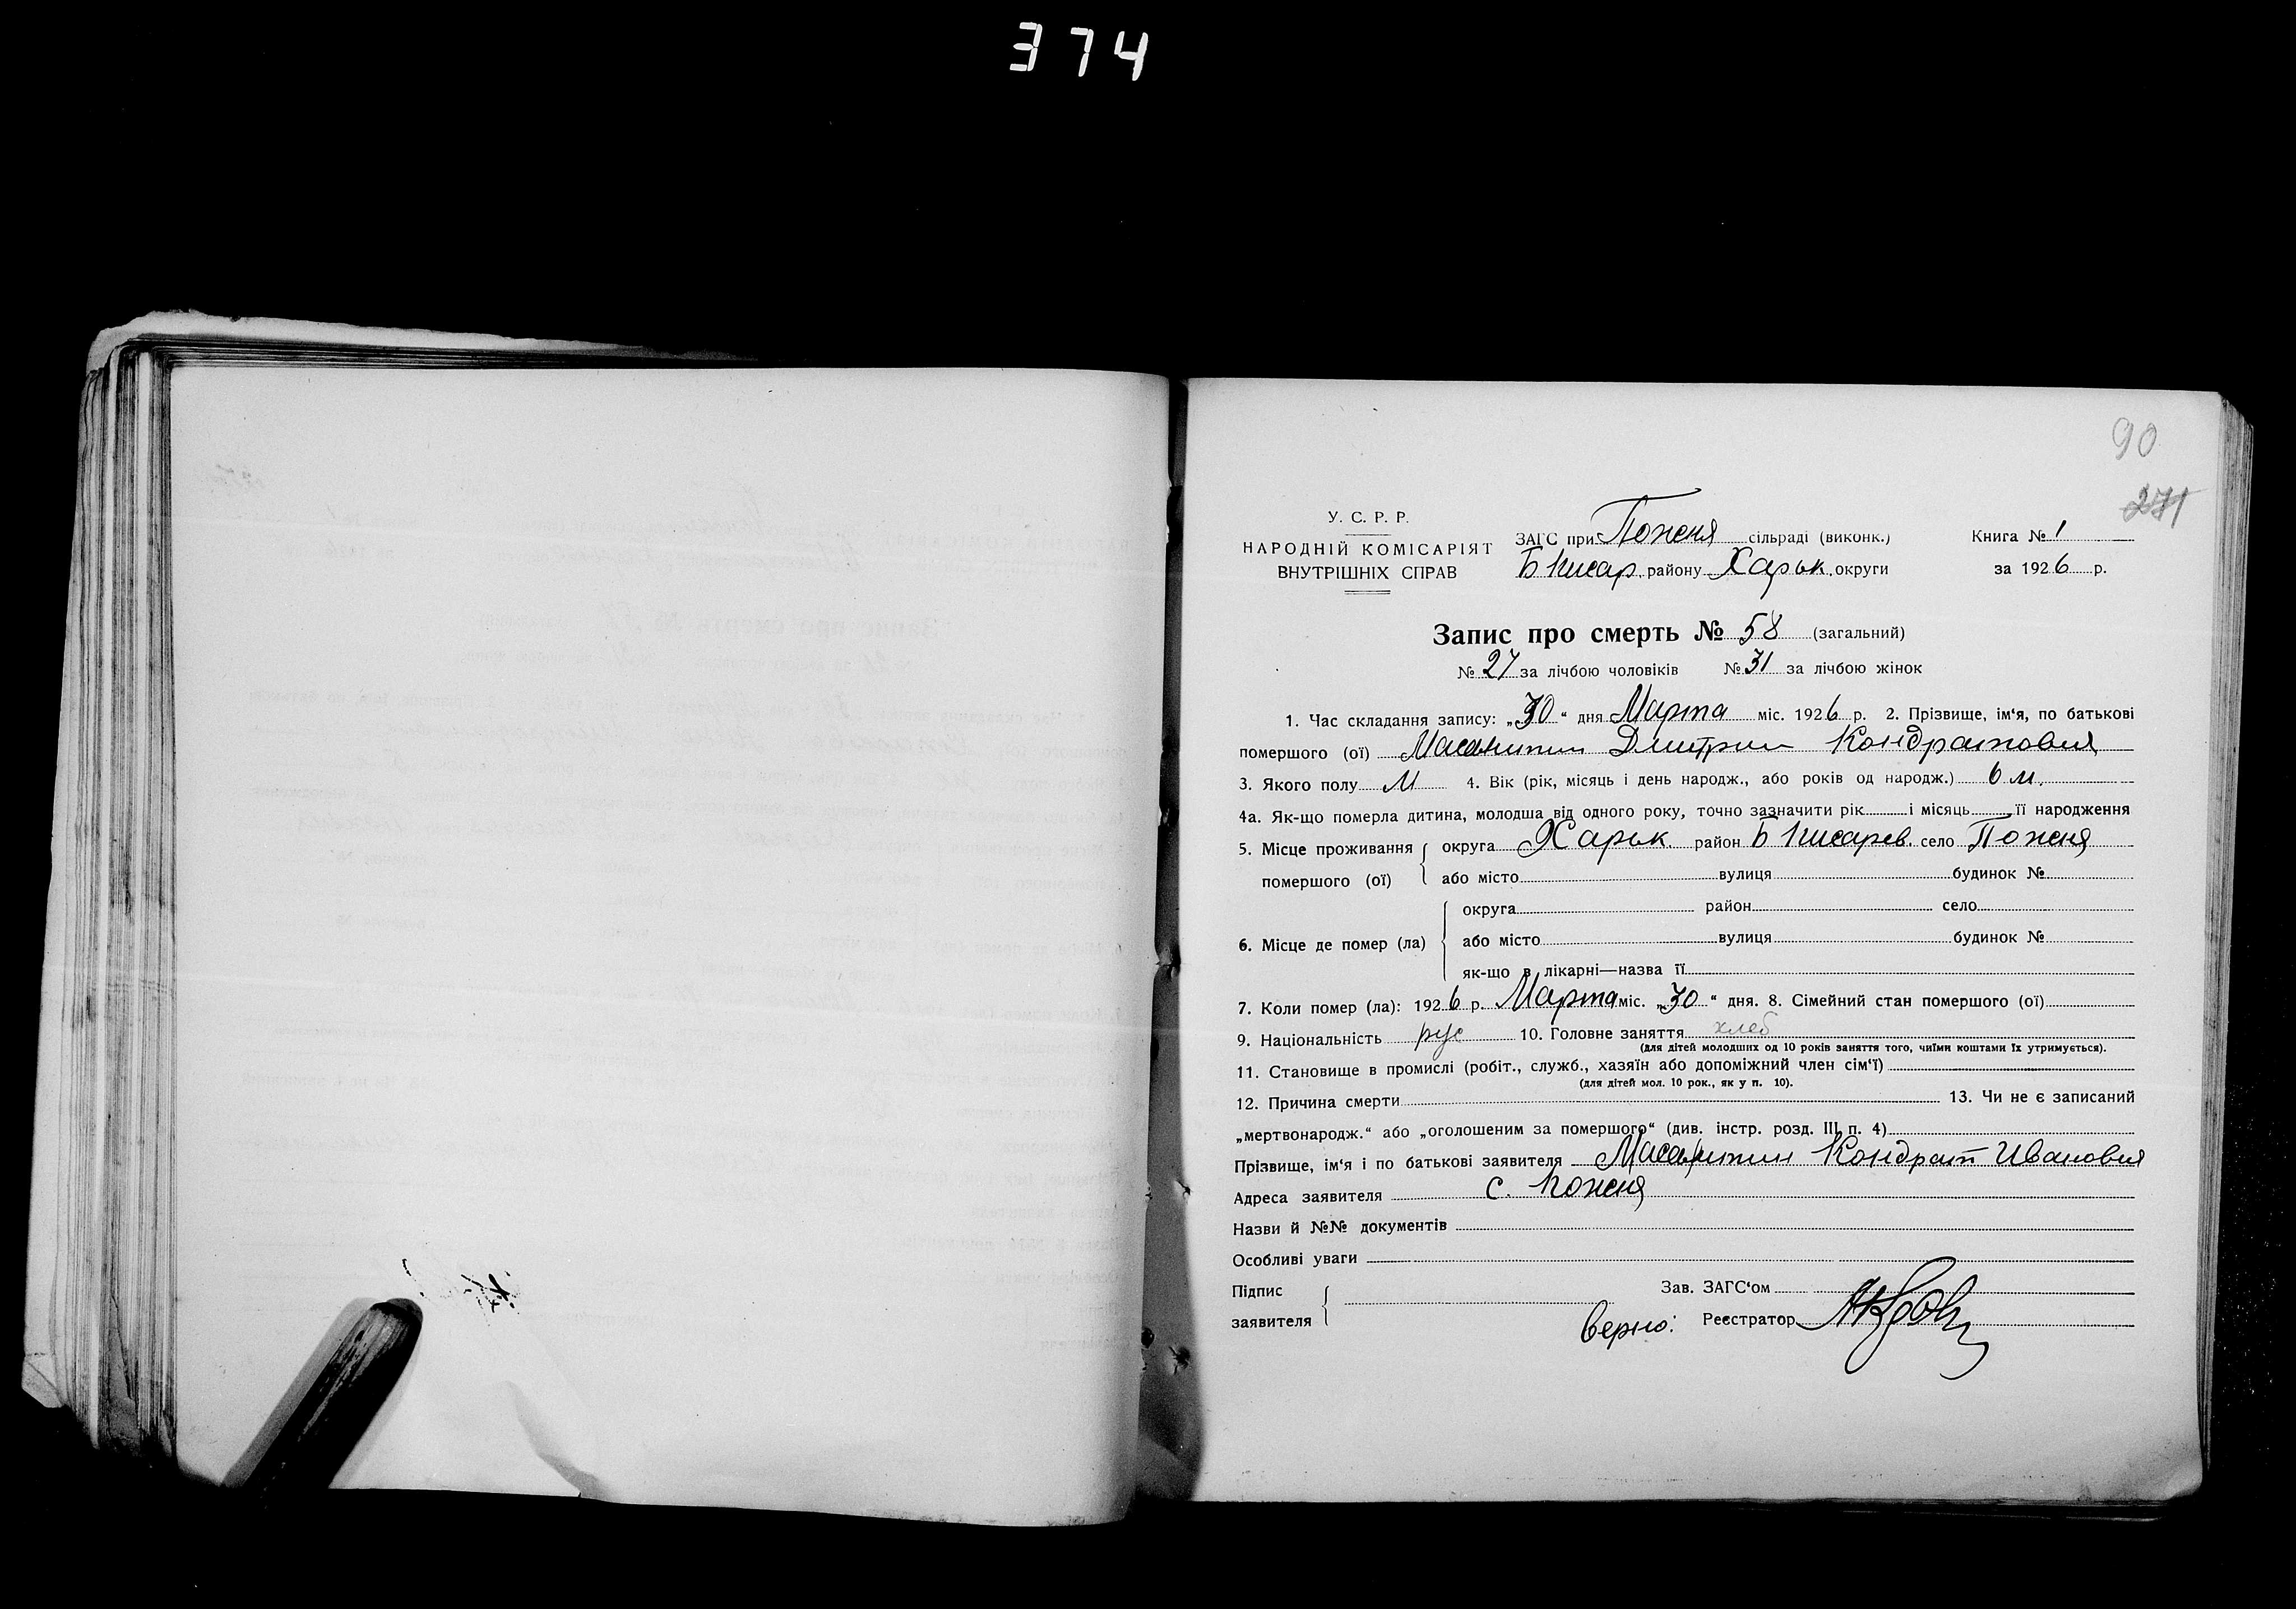 374
90
271
У. С. Р. Р.
НАРОДНІЙ КОМІСАРІЯТ
ВНУТРІШНІХ СПРАВ
ЗАГС при Пожня сільраді (виконк.)
Б Писар. району Харьк. округи
Книга № 1
за 1926 р.
Запис про смерть № 58 (загальний)
№ 27 за лічбою чоловіків № 31 за лічбою жінок
1. Час складання запису: „30“ дня Марта міс. 1926 р. 2. Прізвище, ім‘я, по батькові
помершого (ої) Дмитрий Кондратович
3. Якого полу М 4. Вік (рік, місяць і день народж., або років од народж.) 6 м.
4а. Як-що померла дитина, молодша від одного року, точно зазначити рік і місяць її народження
5. Місце проживання помершого (ої) округа Харьк. район Б Писарев. село Пожня
або місто вулиця будинок №
6. Місце де помер (ла) округа район село
або місто вулиця будинок №
як-що в лікарні—назва її
7. Коли помер (ла): 1926 р. Марта міс. „30“ дня. 8. Сімейний стан помершого (ої)
9. Національність рус 10. Головне заняття хлеб
(для дітей молодших од 10 років заняття того, чиїми коштами їх утримується).
11. Становище в промислі (робіт., служб., хазяїн або допоміжний член сім‘ї)
(для дітей мол. 10 рок., як у п. 10).
12. Причина смерти 13. Чи не є записаний
„мертвонародж.“ або „оголошеним за помершого“ (див. інстр. розд. III п. 4)
Прізвище, ім‘я і по батькові заявителя Кондрат Иванович
Адреса заявителя с. Пожня
Назви й №№ документів
Особливі уваги
Підпис заявителя
Зав. ЗАГС‘ом
Верно: Реєстратор